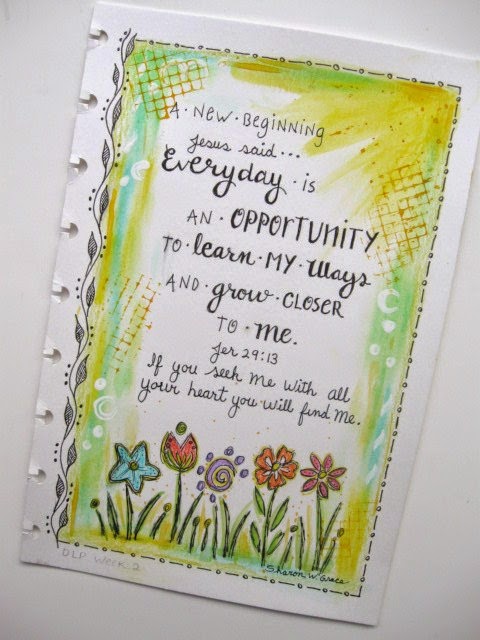 A · NEW · BEGINNING
Jesus said...
Everyday · is
AN · OPPORTUNITY
TO · learn · MY · Ways
AND · grow · CLOSER
TO · me.
Jer 29:13
If you seek Me with all
your heart you will find Me.
Sharon W. Grace
DLP Week 2